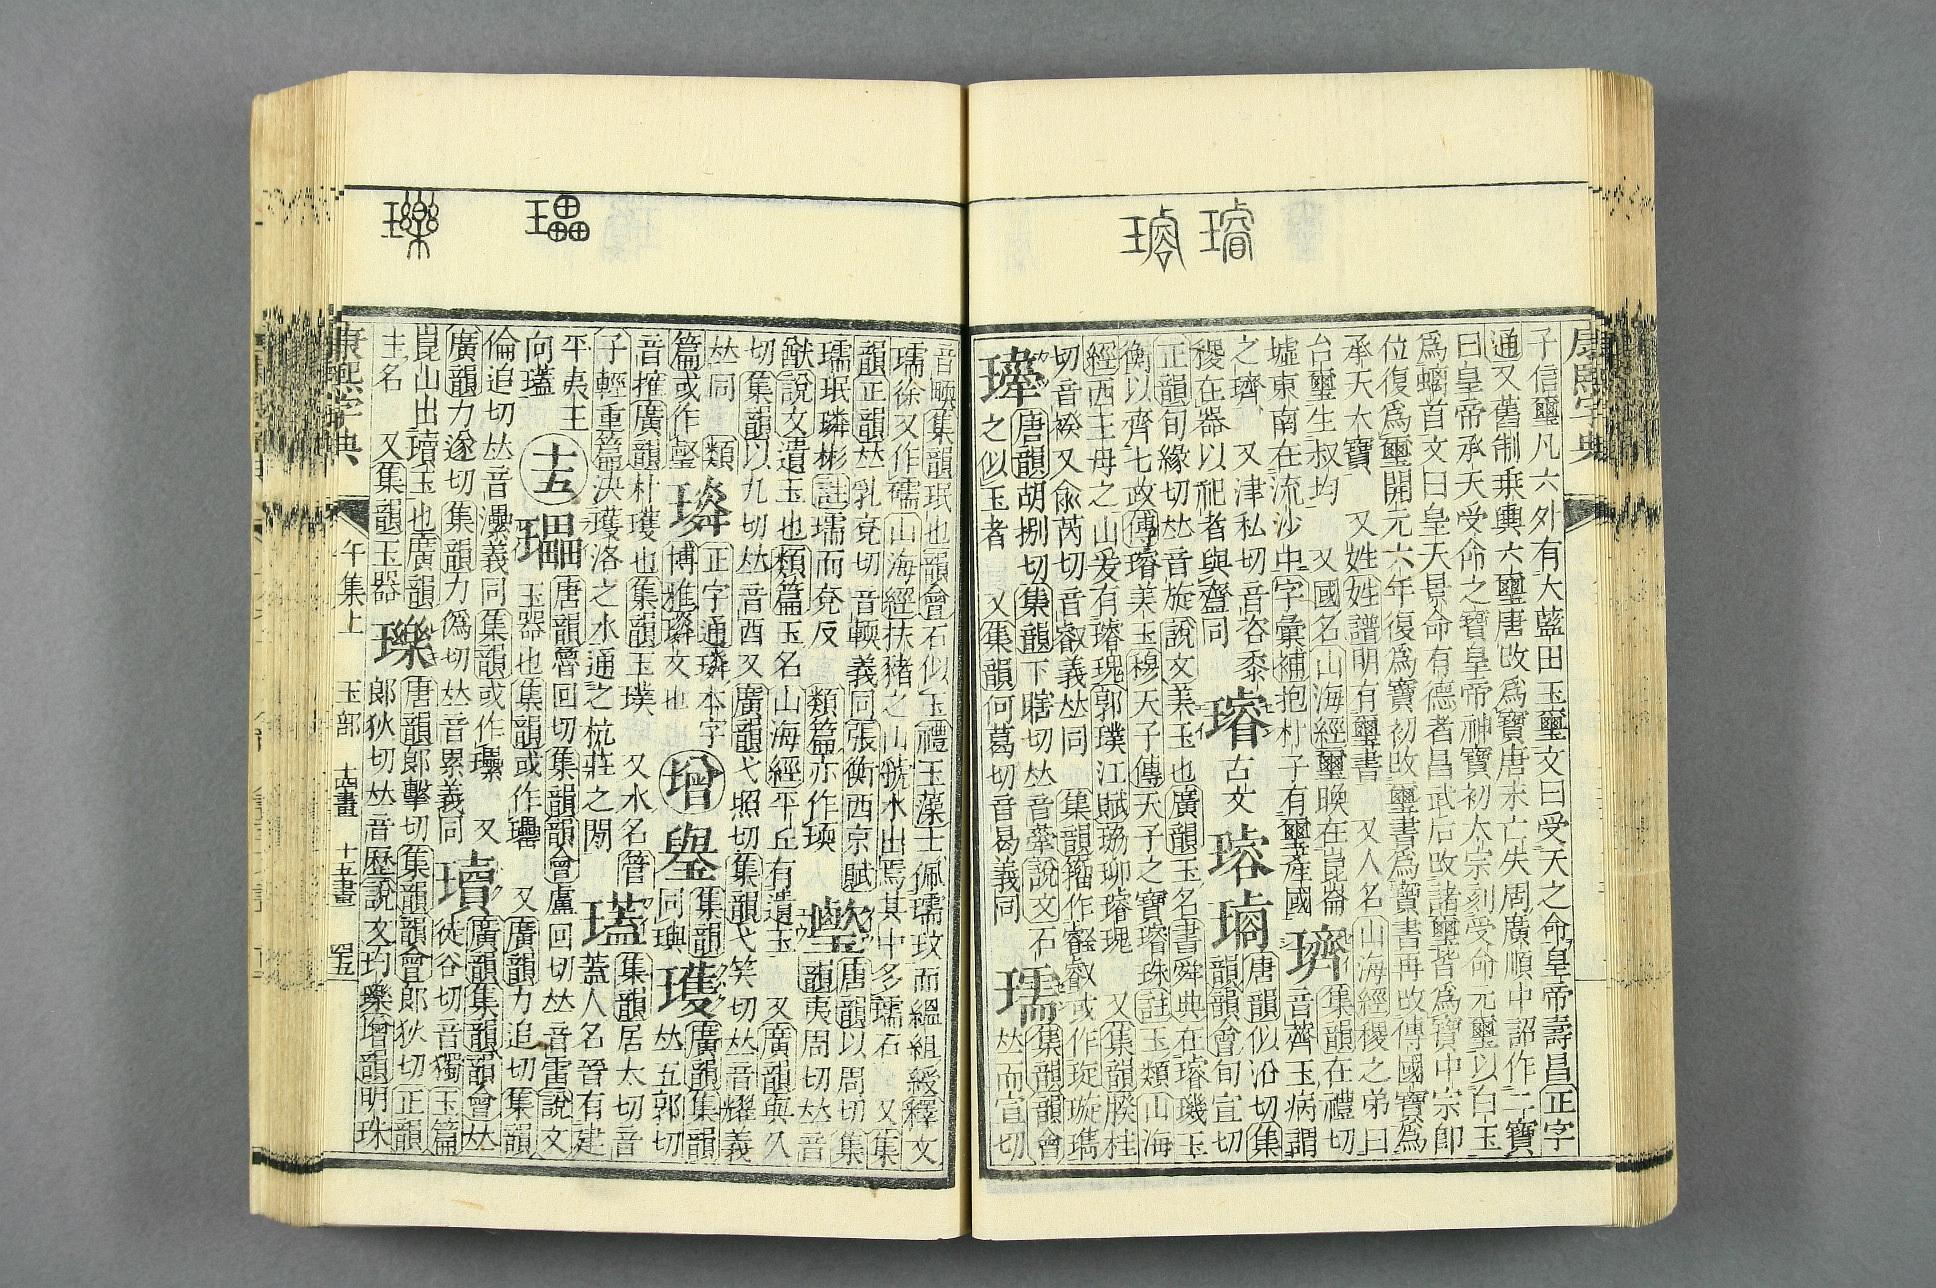 康熙字典
子信璽凡六外有大藍田玉璽文曰受天之命皇帝壽昌正字
通又舊制乗輿六璽唐改爲寶唐末亡失周廣順中詔作二寶
曰皇帝承天受命之寶皇帝神寶初太宗刻受命元璽以白玉
爲螭首文曰皇天景命有德者昌武后改諸璽皆爲寶中宗卽
位復爲璽開元六年復爲寶初改璽書爲寶書再改傳國寶爲
承天大寶 又姓姓譜明有璽書 又人名山海經稷之弟曰
台璽生叔均 又國名山海經璽㬇在崑崙
墟東南在流沙中字彙補抱朴子有璽產國 璾 集韻在禮切
音薺玉病謂
之璾 又津私切音咨黍
稷在器以祀者與齍同 璿 古文 璿 㻽 唐韻似沿切集
韻韻會旬宣切
正韻旬緣切𠀤音旋說文美玉也廣韻玉名書舜典在璿璣玉
衡以齊七政傳璿美玉穆天子傳天子之寶璿珠註玉類山海
經西王母之山爰有璿瑰郭璞江賦珕珋璿瑰 又集韻睽桂
切音揆又兪芮切音叡義𠀤同 集韻籀作叡或作琁璇㻽
瓂 唐韻胡捌切集韻下瞎切𠀤音舝說文石
之似玉者 又集韻何葛切音曷義同 瓀 𠀤而宣切
集韻韻會
音㼲集韻珉也韻會石似玉禮玉藻士佩瓀玟而縕組綬釋文
瓀徐又作礝山海經扶豬之山虢水出焉其中多瓀石 又集
韻正韻𠀤乳兗切音輭義同張衡西京賦
瓀珉璘彬註瓀而兗反 類篇亦作瑌 唐韻以周切集
韻夷周切𠀤音
猷說文遺玉也類篇玉名山海經平丘有遺玉 又廣韻與久
切集韻以九切𠀤音酉又廣韻弋照切集韻弋笑切𠀤音耀義
𠀤同 類
篇或作㙬 璘 正字通璘本字
博雅璘文也 增 璺 集韻
同璵 瓁 廣韻集韻
𠀤五郭切
音㩴廣韻朴瓁也集韻玉璞 又水名管
子輕重篇決瓁洛之水通之杭莊之閒 㻵 集韻居太切音
蓋人名晉有建
平夷王
向㻵 十五 㼍 唐韻魯回切集韻韻會盧回切𠀤音雷說文
玉器也集韻或作㽮 又廣韻力追切集韻
倫追切𠀤音㶟義同集韻或作瓃 又
廣韻力遂切集韻力僞切𠀤音累義同 瓄 廣韻集韻韻會𠀤
徒谷切音獨玉篇
崑山出瓄玉也廣韻
圭名 又集韻玉器 瓅 唐韻郞擊切集韻韻會郞狄切正韻
郞狄切𠀤音歷說文玓瓅增韻明珠
康熙字典 午集上 玉部 十四畫 十五畫